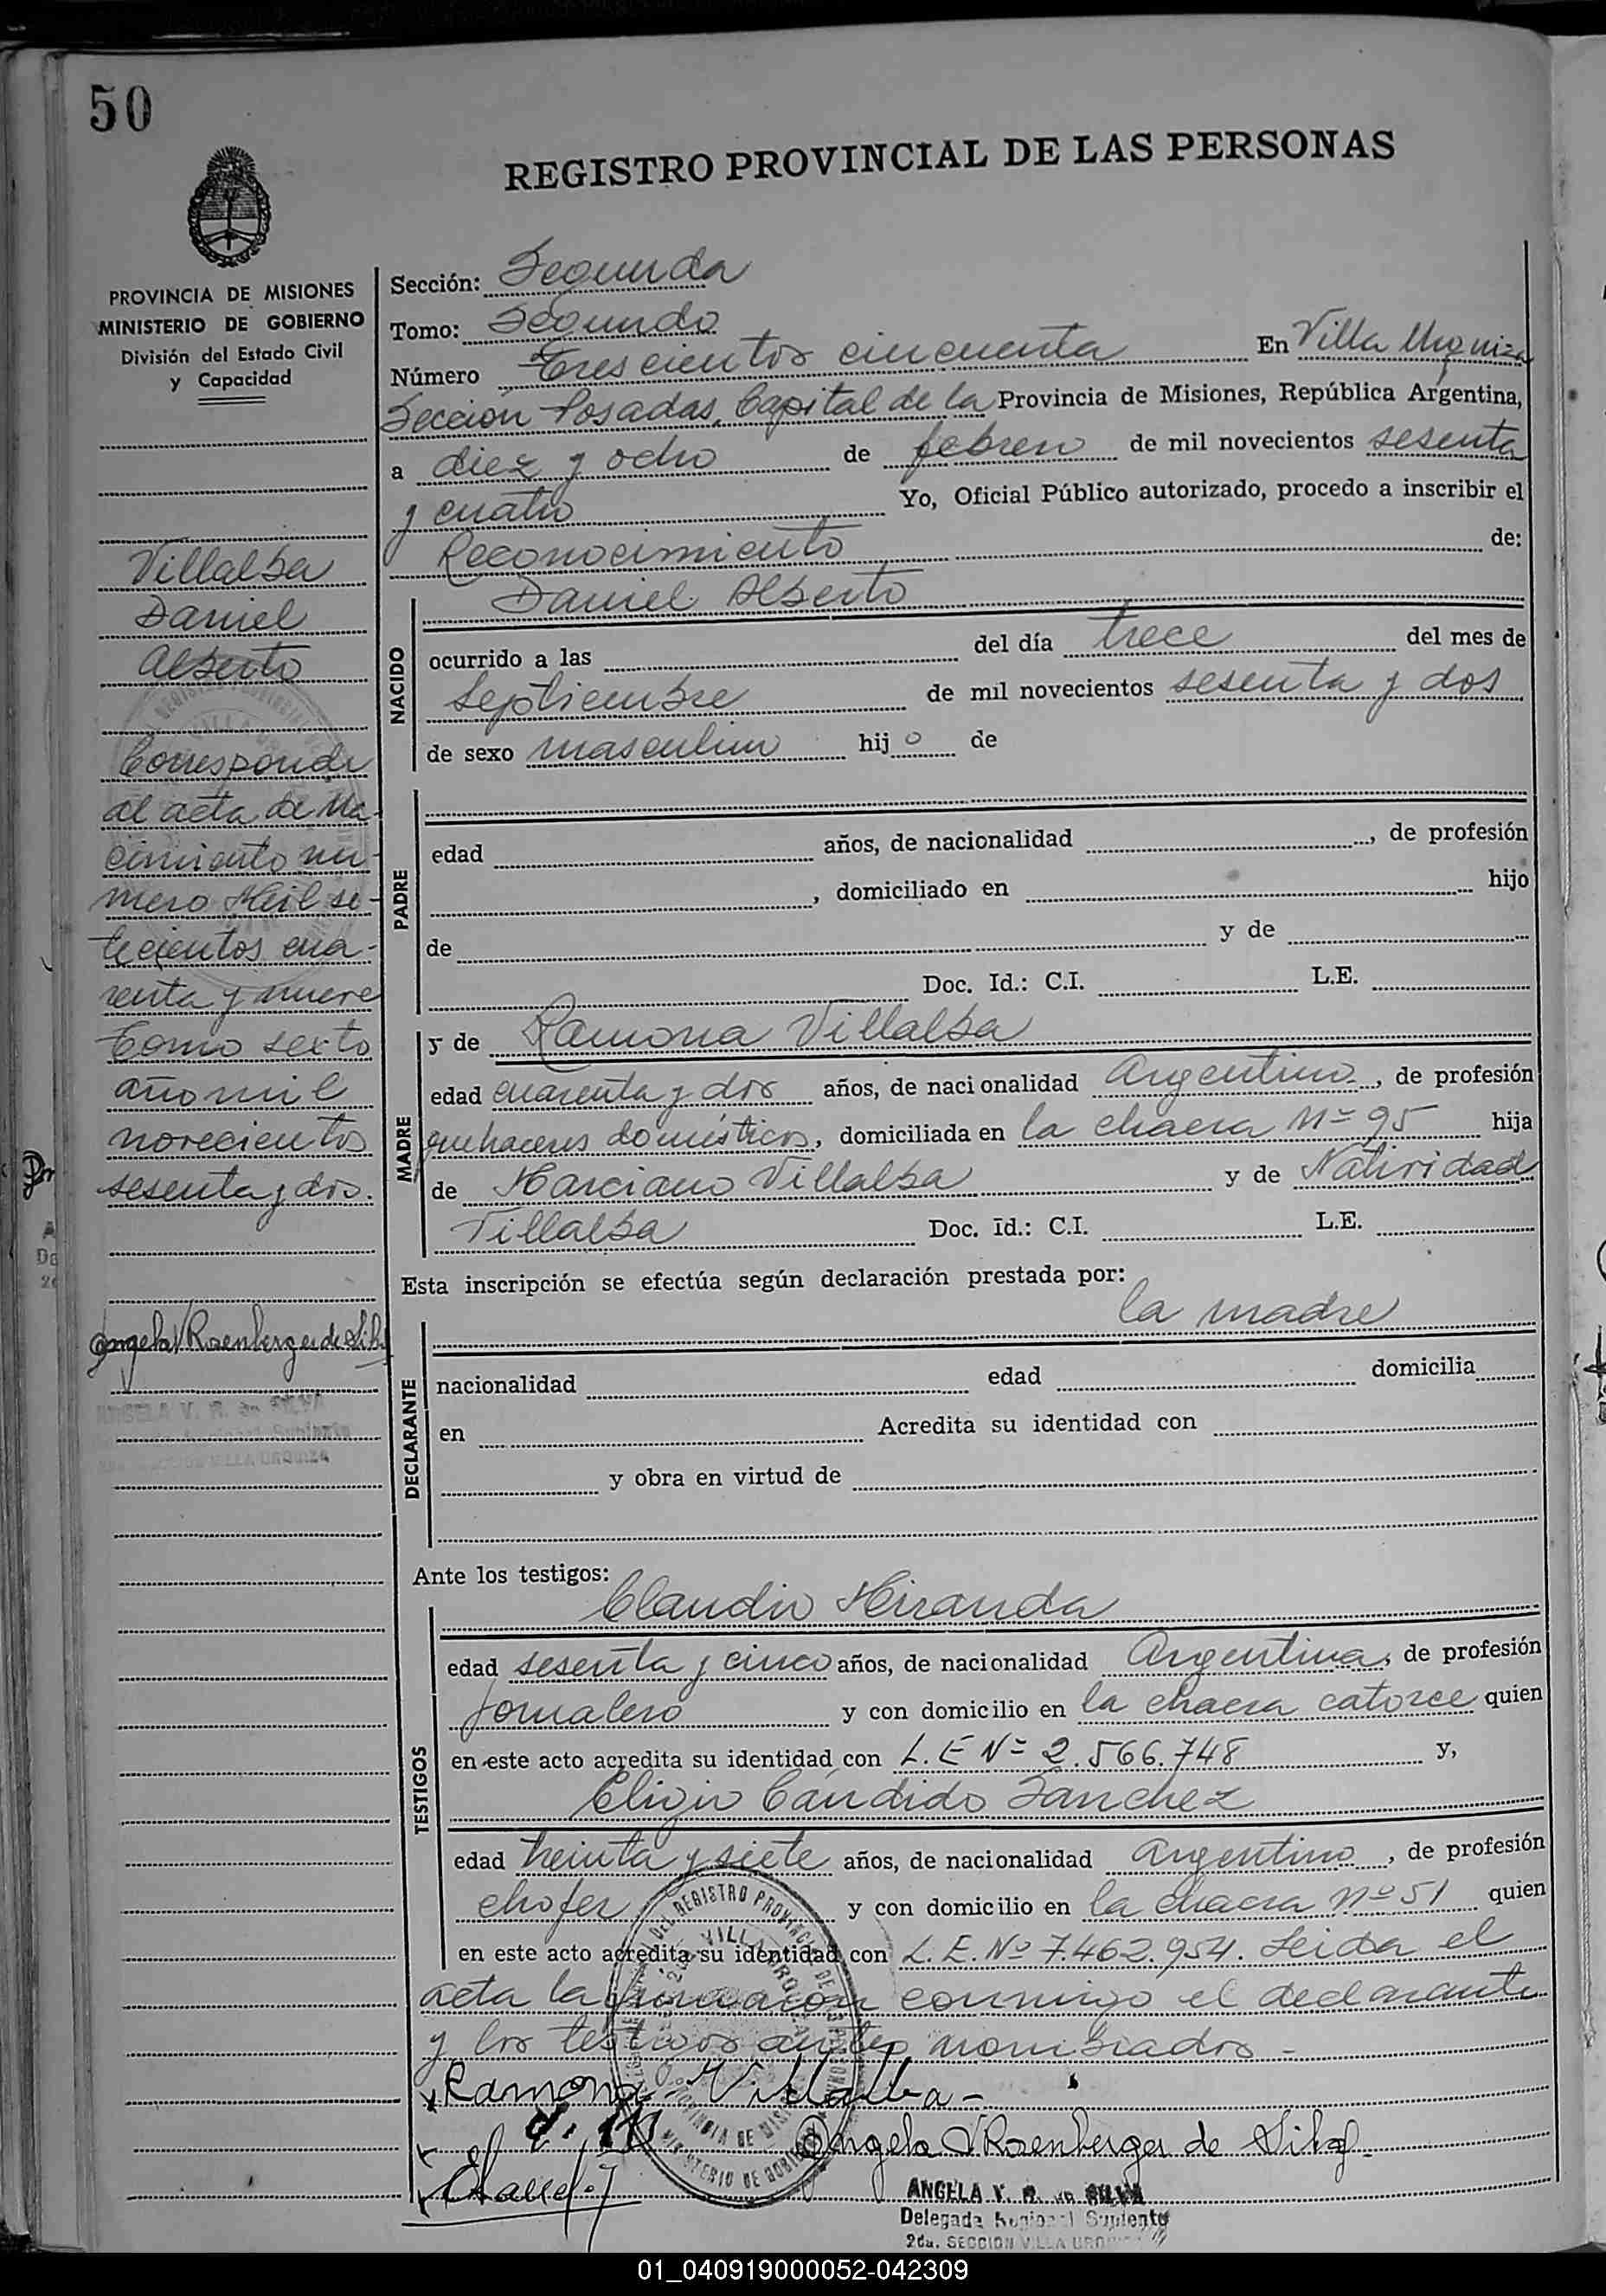 50
REGISTRO PROVINCIAL DE LAS PERSONAS
PROVINCIA DE MISIONES
MINISTERIO DE GOBIERNO
División del Estado Civil
y Capacidad
Villalba
Daniel
Alberto
Corresponde
al acta de Na-
cimiento nu-
mero Mil se-
tecientos cua-
renta y nueve
Tomo sexto
año mil
novecientos
sesenta y dos.
Angela V Rosenberger de Silva
ANGELA V. R. de SILVA
VILLA URQUIZA
Sección: Segunda
Tomo: Segundo
Número Trescientos cincuenta En Villa Urquiza
Sección Posadas, Capital de la Provincia de Misiones, República Argentina,
a diez y ocho de febrero de mil novecientos sesenta
y cuatro Yo, Oficial Público autorizado, procedo a inscribir el
Reconocimiento de:
NACIDO
Daniel Alberto
ocurrido a las del día trece del mes de
septiembre de mil novecientos sesenta y dos
de sexo masculino hijo de
PADRE
edad años, de nacionalidad , de profesión
, domiciliado en hijo
de y de
Doc. Id.: C.I. L.E.
MADRE
y de Ramona Villalba
edad cuarenta y dos años, de nacionalidad Argentina, de profesión
quehaceres domésticos, domiciliada en la chacra Nº 95 hija
de Marciano Villalba y de Natividad
Villalba Doc. Id.: C.I. L.E.
Esta inscripción se efectúa según declaración prestada por:
la madre
DECLARANTE
nacionalidad edad domicilia
en Acredita su identidad con
y obra en virtud de
Ante los testigos:
TESTIGOS
Claudio Miranda
edad sesenta y cinco años, de nacionalidad Argentina, de profesión
jornalero y con domicilio en la chacra catorce quien
en este acto acredita su identidad con L.E Nº 2.566.748 y,
Eligio Cándido Sanchez
edad treinta y siete años, de nacionalidad Argentino, de profesión
chofer y con domicilio en la chacra nº 51 quien
en este acto acredita su identidad con L.E. Nº 7.462.954. Leida el
acta la firmaron conmigo el declarante
y los testigos antes nombrados -
Ramona Villalba -
Angela V Rosenberger de Silva
ANGELA V. R. de SILVA
Delegada Regional Suplente
2da. SECCION VILLA URQUIZA
01_040919000052-042309